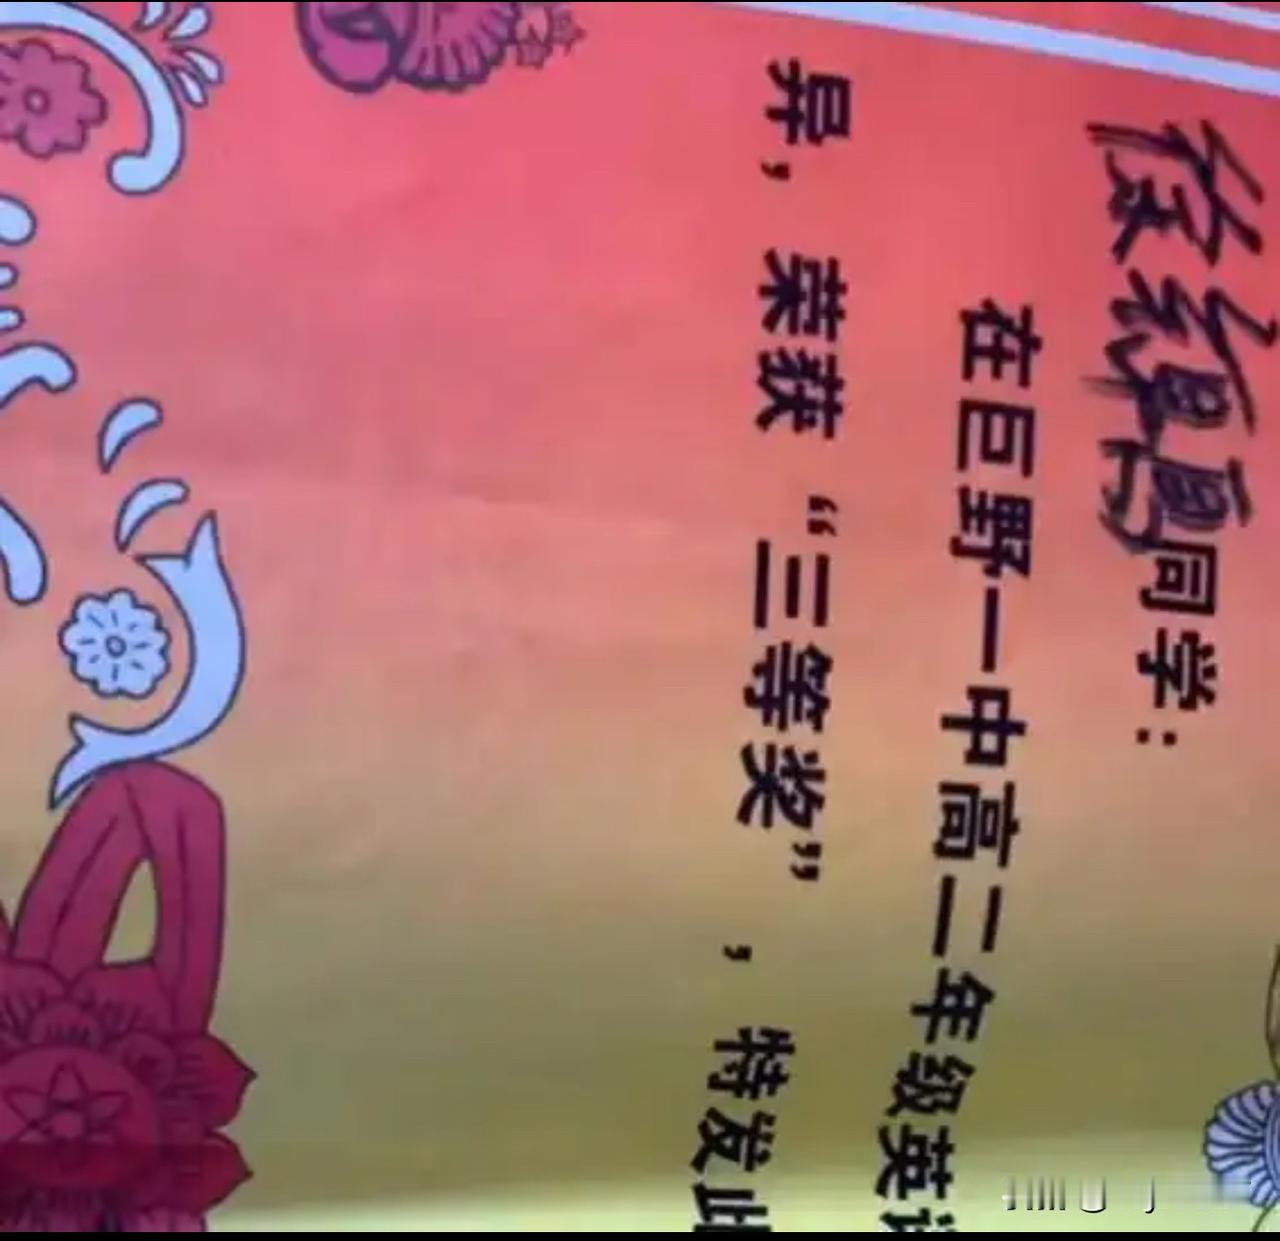 徐缊同学：
在巨野一中高二年级英
异，荣获“三等奖”，特发此